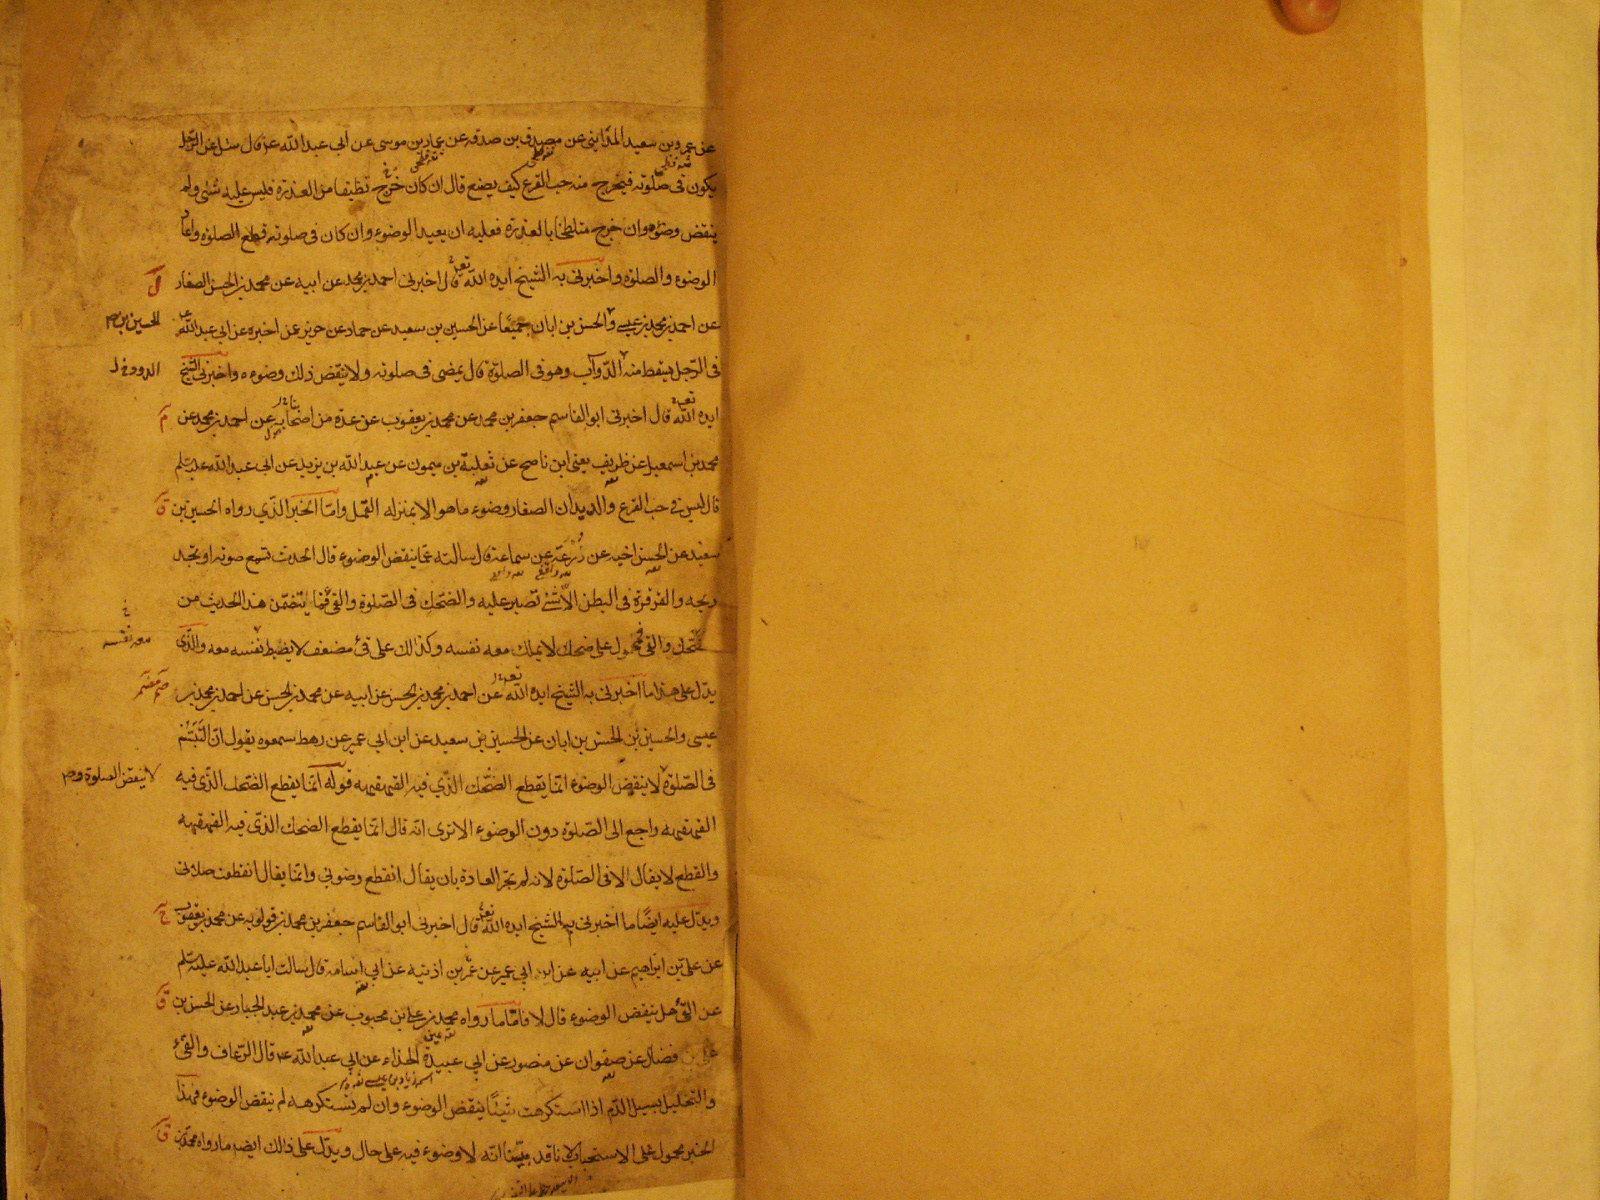 عن عمرو بن سعيد المدايني عن مصدق بن صدقه عن عمار بن موسى عن ابي عبد الله ع قال سئل عن الرجل
يكون في صلوته فيخرج منه حب القرع كيف يصنع قال ان كان خرج نظيفا من العذرة فليس عليه شئ ولم
ينقض وضوءه وان خرج متلطخا بالعذرة فعليه ان يعيد الوضوء وان كان في صلوته قطع الصلوة واعاد
الوضوء والصلوة واخبرني به الشيخ ايده الله تعالى قال اخبرني احمد بن محمد عن ابيه عن محمد بن الحسن الصفار
عن احمد بن محمد بن عيسى والحسن بن ابان جميعا عن الحسين بن سعيد عن حماد عن حريز عن اخبره عن ابي عبد الله ع
الحسين بن
في الرجل يسقط منه الدوآب وهو في الصلوة قال يمضي في صلوته ولا ينقض ذلك وضوءه واخبرني الشيخ
الدود
ايده الله تعالى قال اخبرني ابو القاسم جعفر بن محمد عن محمد بن يعقوب عن عدة من اصحابه عن احمد بن محمد عن
محمد بن اسمعيل عن ظريف يعني ابن ناصح عن ثعلبة بن ميمون عن عبد الله بن يزيد عن ابي عبد الله عليه سلم
قال ليس في حب القرع والديدان الصغار وضوء ما هو الا بمنزله القمل واما الخبر الذي رواه الحسين بن
سعيد عن الحسن اخيه عن زرعة عن سماعة قال سالته عما ينقض الوضوء قال الحدث تسمع صوته او تجد
ريحه والقرقرة في البطن الا شئ تصبر عليه والضحك في الصلوة والقئ فما يتضمن هذا الحديث من
ضحك والقئ فمحمول على ضحك لا يملك معه نفسه وكذالك على قئ مضعف لا يضبط نفسه معه والذي
معه نفسه
يدل على هذا ما اخبرني به الشيخ ايده الله تعالى عن احمد بن محمد بن الحسن عن ابيه عن محمد بن الحسن عن احمد بن محمد بن
عيسى والحسين بن الحسن بن ابان عن الحسين بن سعيد عن ابن ابي عمير عن رهط سمعوه يقول ان التبسم
في الصلوة لا ينقض الوضوء انما يقطع الضحك الذي فيه القهقهه قوله انما يقطع الضحك الذي فيه
لا ينقض الصلوة و
القهقهه راجع الى الصلوة دون الوضوء الا ترى انه قال انما يقطع الضحك الذي فيه القهقهه
والقطع لا يقال الا في الصلوة لانه لم تجر العادة بان يقال انقطع وضوئي وانما يقال انقطعت صلاتي
ويدل عليه ايضا ما اخبرني به الشيخ ايده الله تعالى قال اخبرني ابو القاسم جعفر بن محمد بن قولويه عن محمد بن يعقوب
عن علي بن ابراهيم عن ابيه عن ابن ابي عمير عن عمر بن اذنيه عن ابي اسامه قال سالت ابا عبد الله عليه سلم
عن القئ هل ينقض الوضوء قال لا فاما ما رواه محمد بن علي بن محبوب عن محمد بن عبد الجبار عن الحسن بن
علي بن فضال عن صفوان عن منصور عن ابي عبيدة الحذاء عن ابي عبد الله ع قال الرعاف والقئ
والتخليل يسيل الدم اذا استكرهت شيئا ينقض الوضوء وان لم تستكرهه لم ينقض الوضوء فهذا
الخبر محمول على الاستحباب لانا قد بينا انه لا وضوء فيه على حال ويدل على ذالك ايضه ما رواه محمد بن